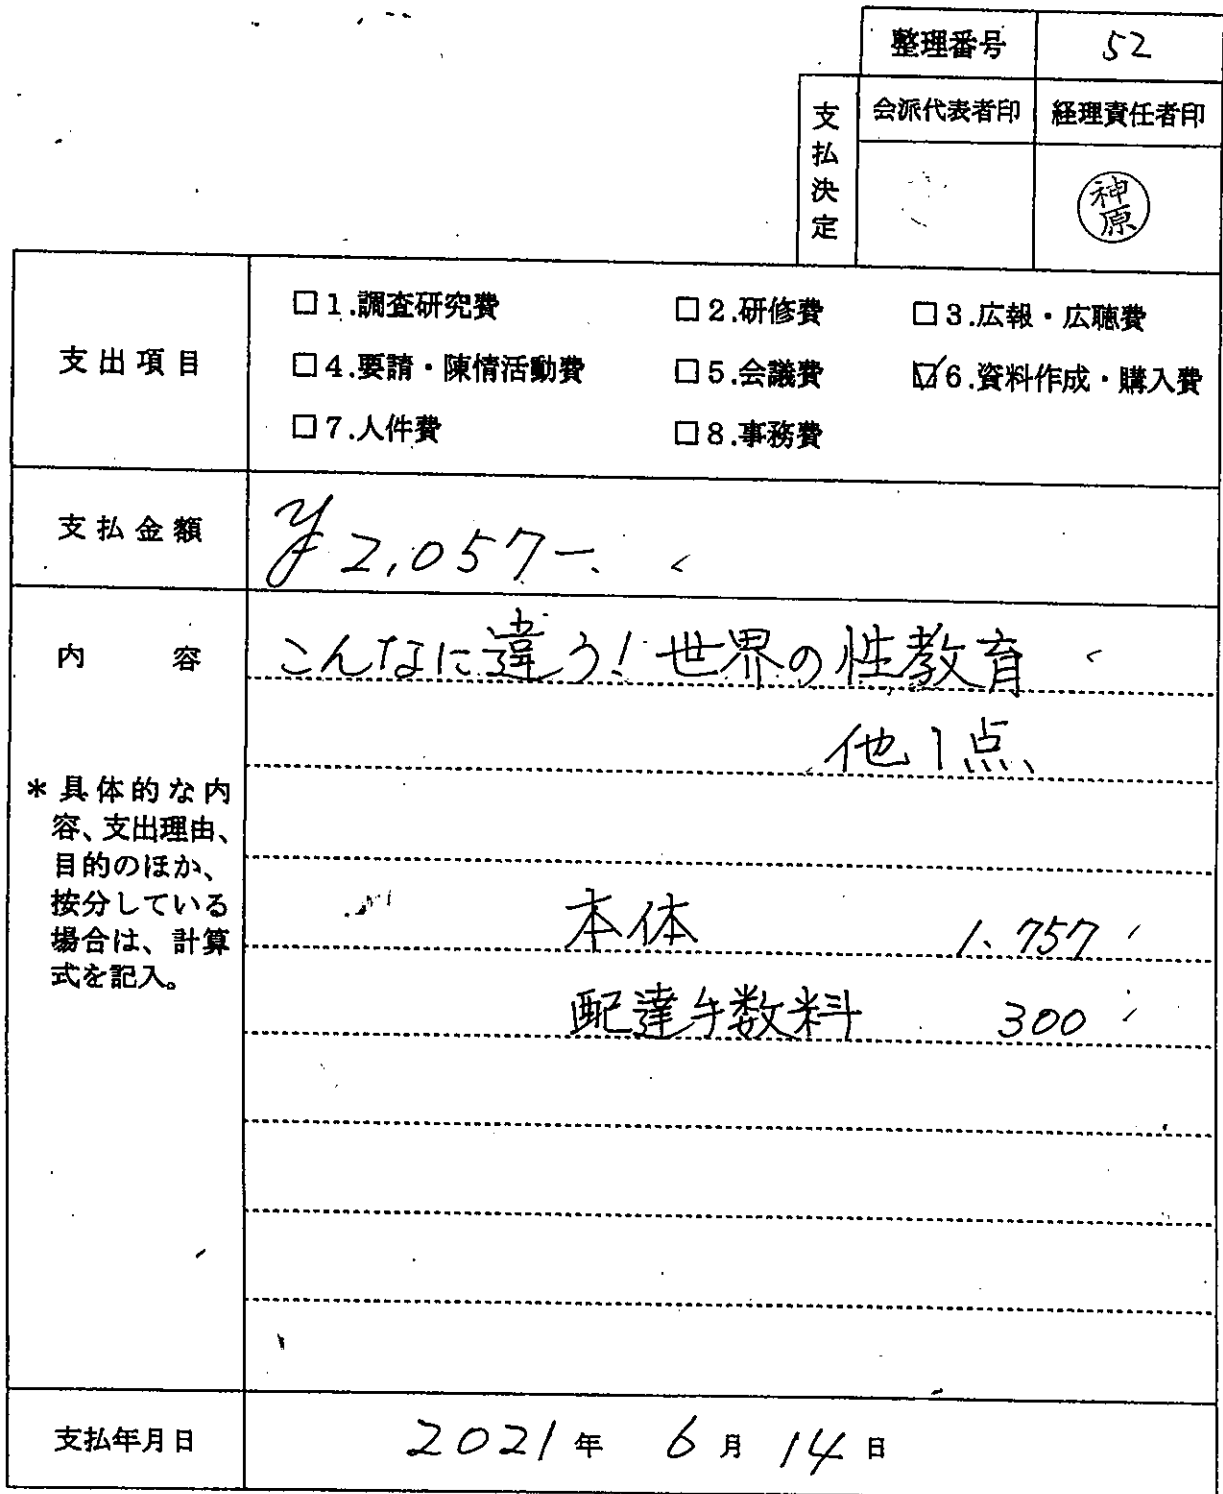 整理番号 52
支払決定 会派代表者印 経理責任者印
神原
支出項目
□1.調査研究費 □2.研修費 □3.広報・広聴費
□4.要請・陳情活動費 □5.会議費 ☑6.資料作成・購入費
□7.人件費 □8.事務費
支払金額 ¥2,057-.
内容 こんなに違う!世界の性教育
他1点、
*具体的な内
容、支出理由、
目的のほか、
按分している
場合は、計算
式を記入。
本体 1、757
配達手数料 300
支払年月日 2021年 6月 14日